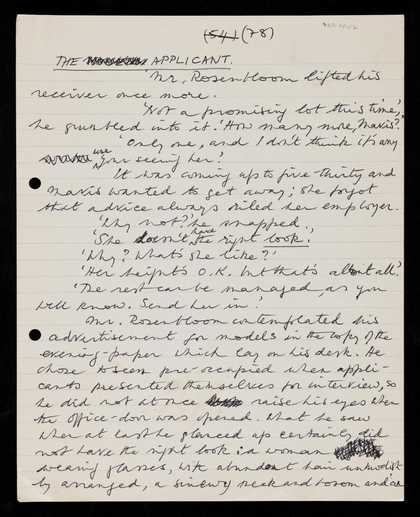 (54) (78)
THE APPLICANT.
Mr. Rosenbloom lifted his
receiver once more.
'Not a promising lot this time,'
he grumbled into it. 'How many more, Mavis?'
'Only one, and I don't think it's any
use you seeing her.'
It was coming up to five-thirty and
Mavis wanted to get away; she forgot
that advice always riled her employer.
'Why not?' he snapped.
'She doesn't have the right look.'
'Why? What's she like?'
'Her height's O.K. but that's about all.'
'The rest can be managed, as you
well know. Send her in.'
Mr. Rosenbloom contemplated his
advertisement for models in the copy of the
evening-paper which lay on his desk. He
chose to seem pre-occupied when appli-
cants presented themselves for interview, so
he did not at once raise his eyes when
the office-door was opened. What he saw
when at last he glanced up certainly did
not have the right look: a woman
wearing glasses, with abundant hair unmodish-
ly arranged, a sinewy neck and bosom and